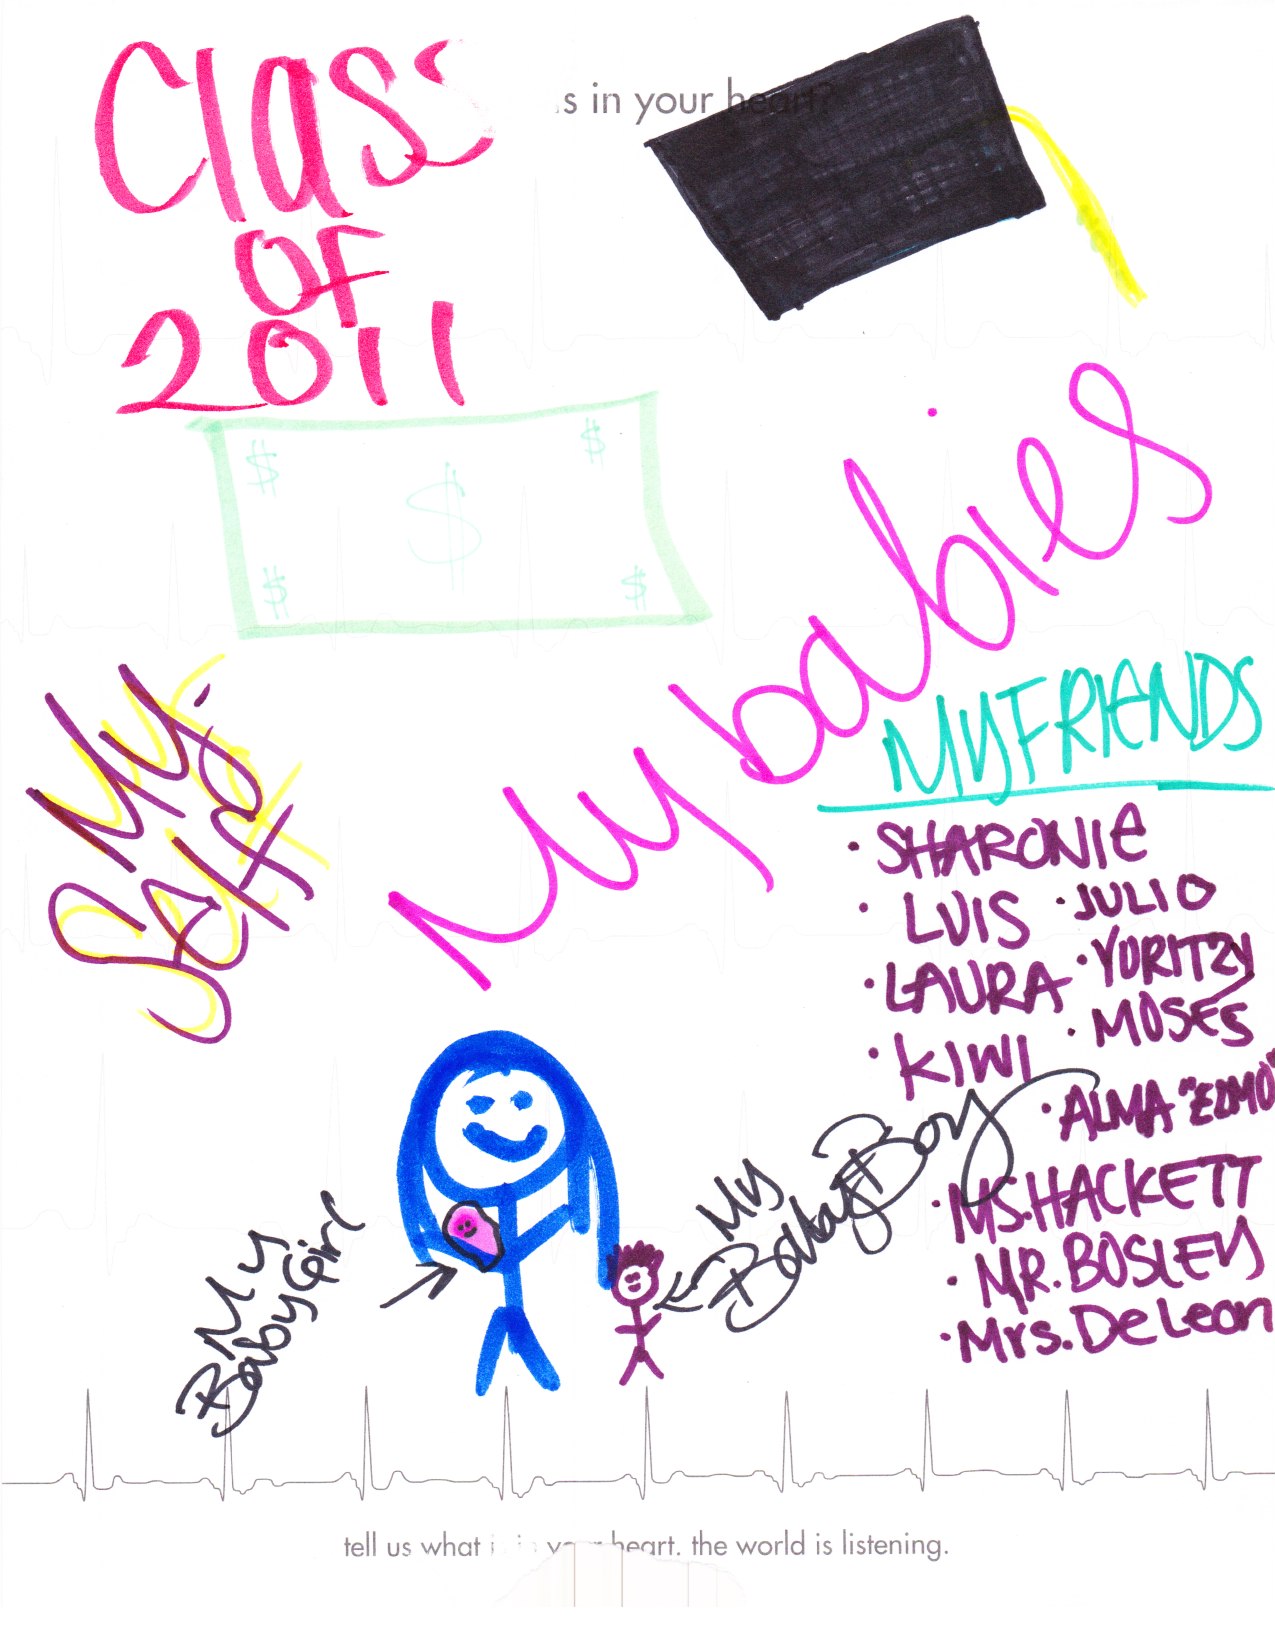 Class
OF
2011
s in your heart?
$ $
$
$ $
My babies
My
Self
MY FRIENDS
· SHARONIE
· LUIS · JULIO
· LAURA · YURITZY
· KIWI · MOSES
· ALMA "ELMO"
· MS. HACKETT
· MR. BOSLEY
· Mrs. DeLeon
My
Baby Boy
My
Baby Girl
tell us what is in your heart. the world is listening.